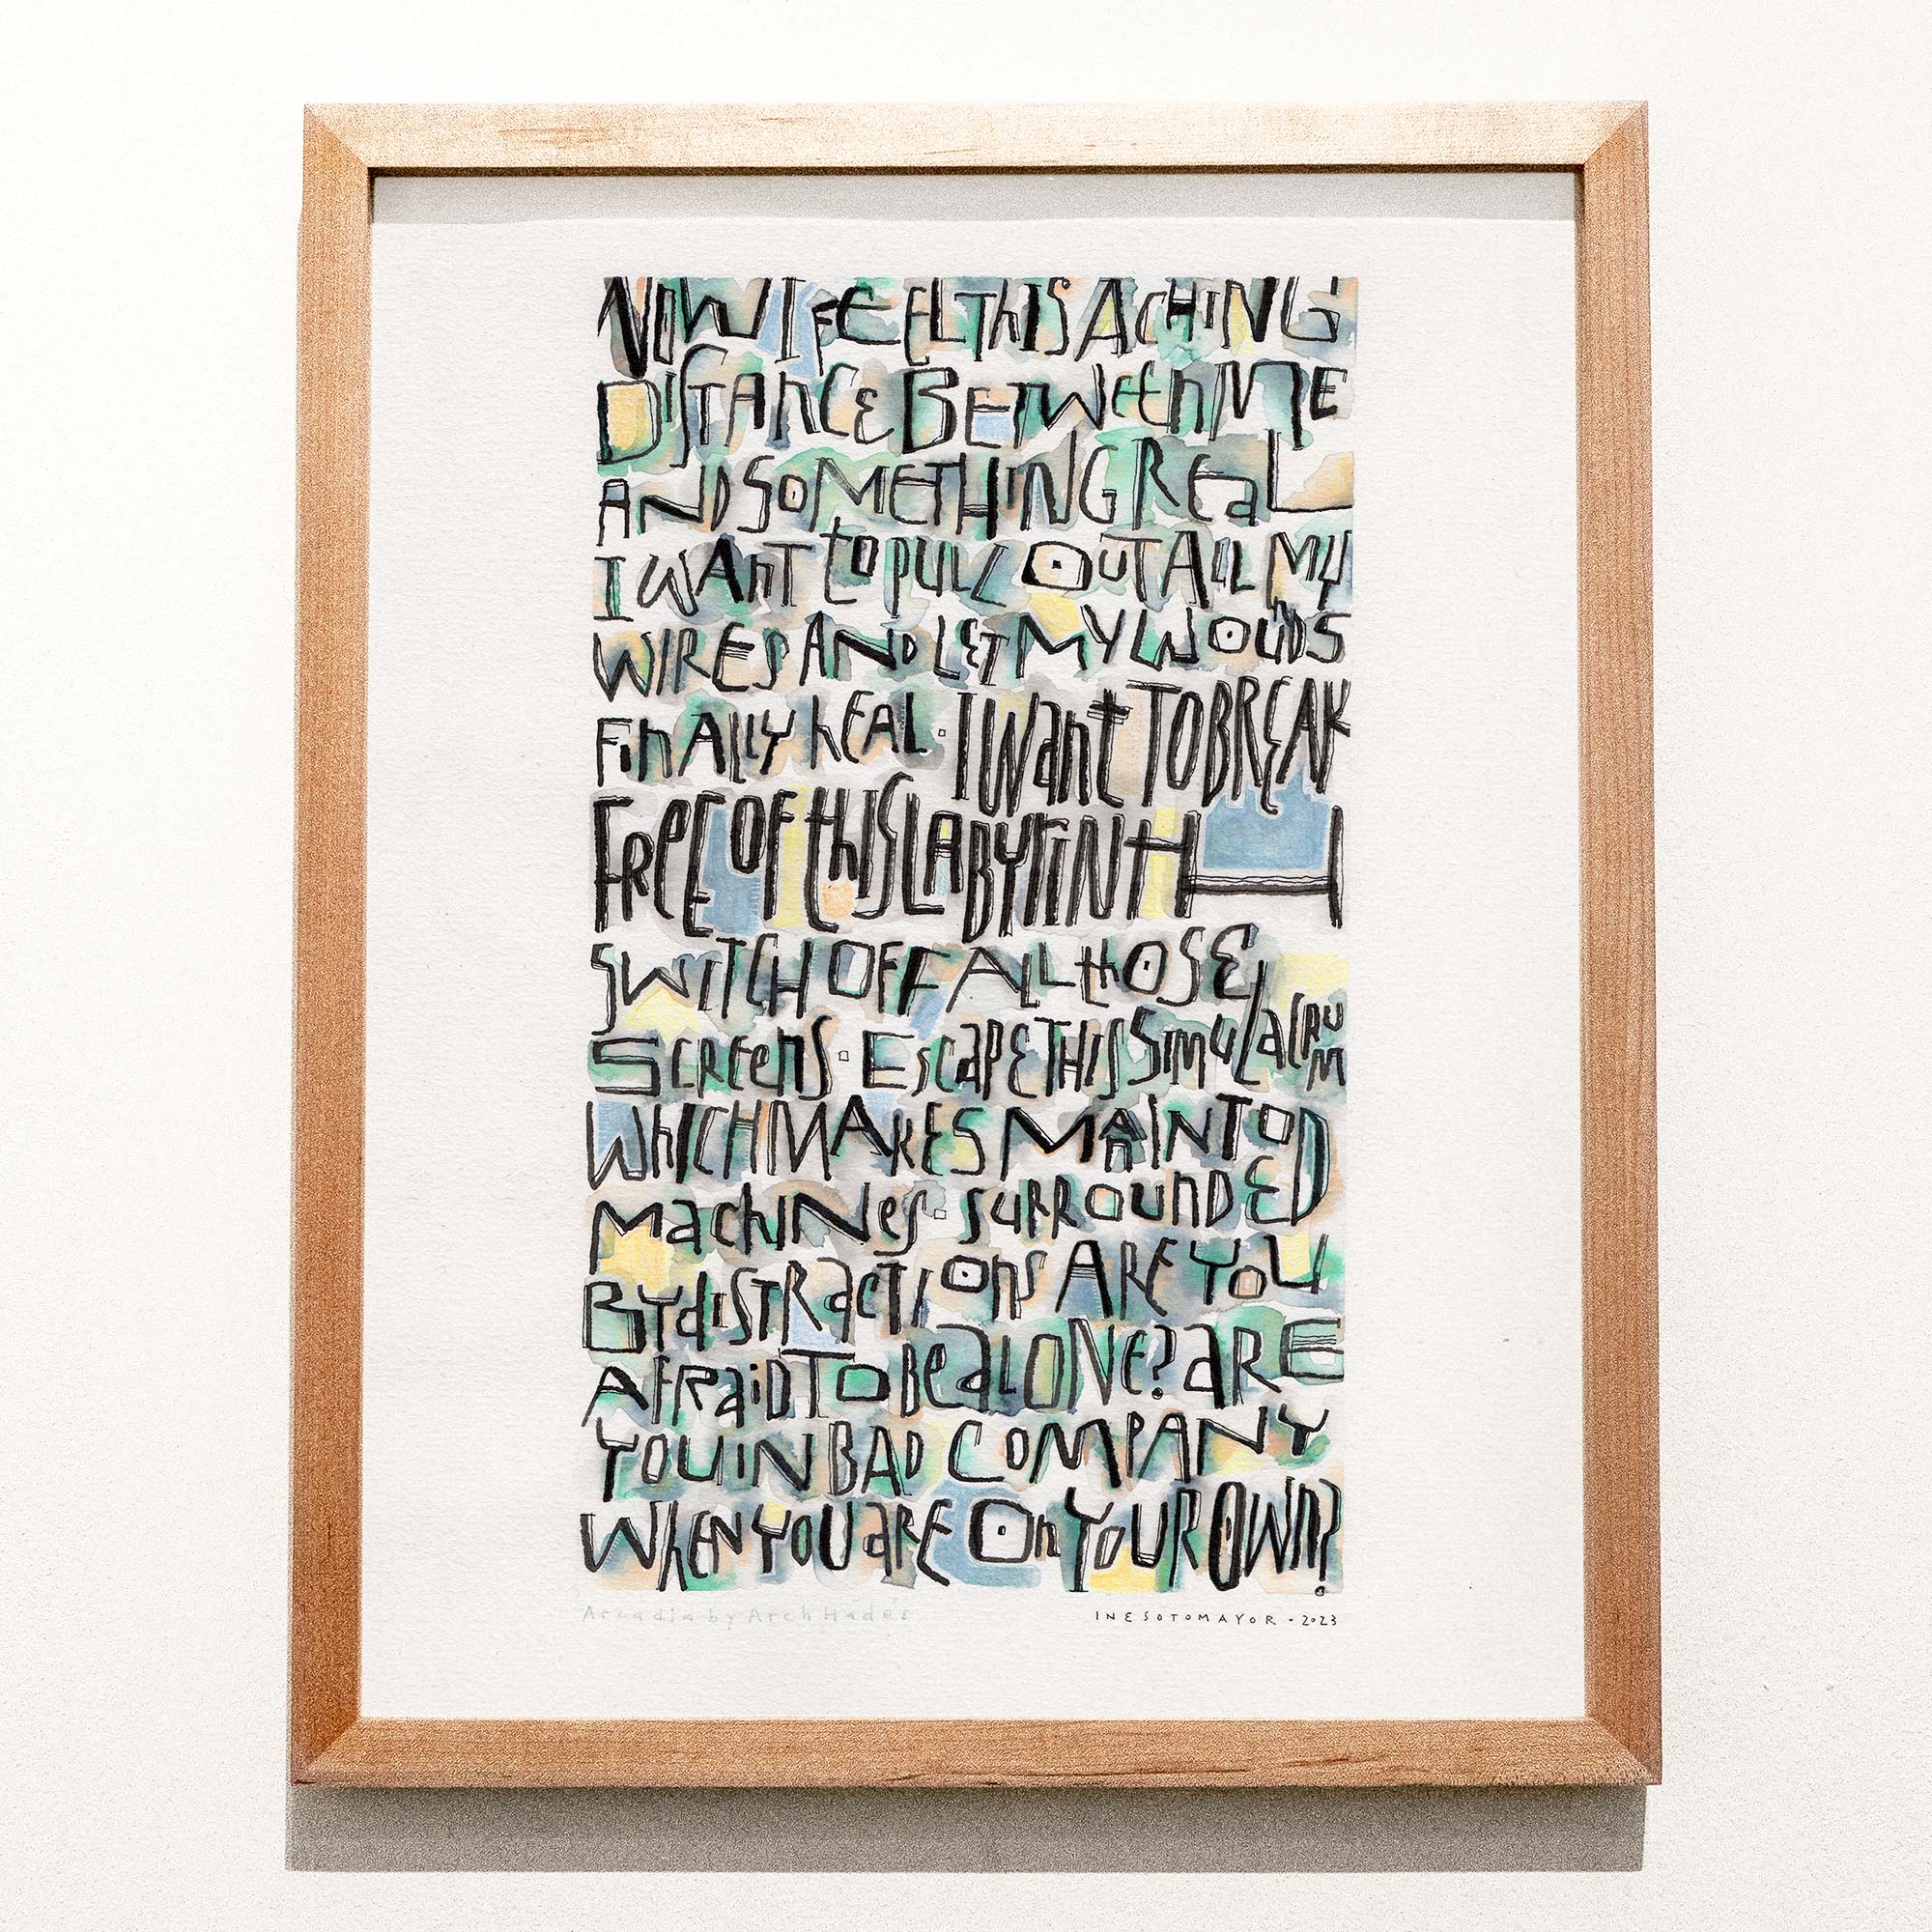 NOW I FEEL THIS ACHING
DISTANCE BETWEEN ME
AND SOMETHING REAL
I WANT to PULL OUT ALL MY
WIRES AND LET MY WOUDS
FINALLY hEAL · I Want TO BREAK
FREE OF thIS LABYRINTH
SWITCH OFF ALL thOSE
SCREENS · EscaPE THIS SIMULaCRUM
WhICH MAKES MAN INTO
MachINes · SURROUNDED
BY dISTRactIONS ARE YOU
AFRaiD TO Be aLONE? aRE
YOU IN BAD COMPANY
WhEN YOU aRE On YOUR OWN?
Arcadia by Arch Hades
INE SOTOMAYOR · 2023